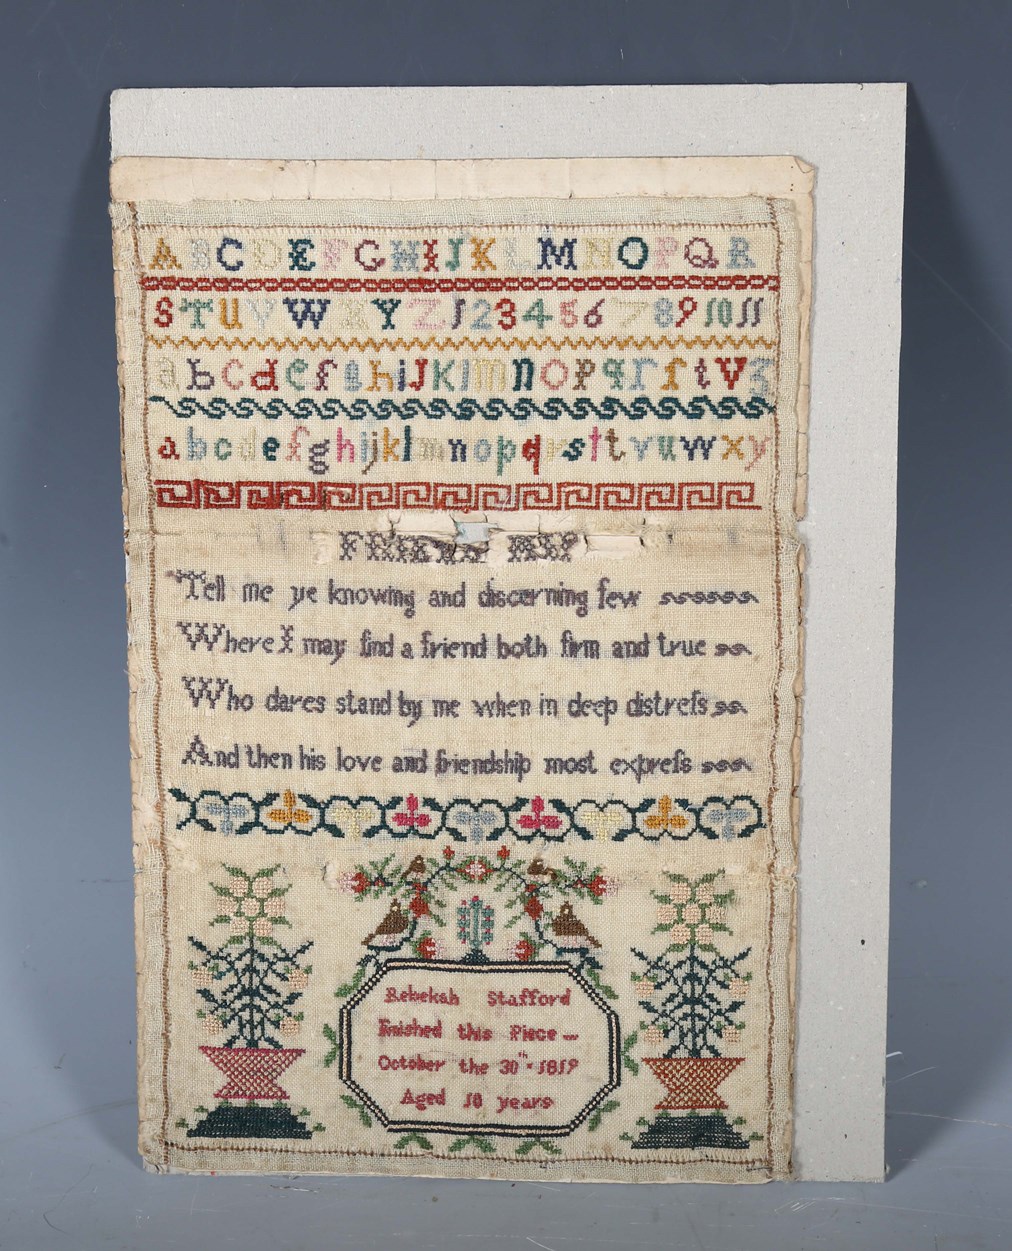 A B C D E F G H I J K L M N O P Q R
S T U V W X Y Z 1 2 3 4 5 6 7 8 9 10 11
a b c d e f g h i J k l m n o p q r ſ t v 3
a b c d e f g h i j k l m n o p q r s t t v u w x y
Tell me ye knowing and discerning few
Where I may find a friend both firm and true
Who dares stand by me when in deep distreſs
And then his love and friendship most expreſs
Rebekah Stafford
finished this Piece
October the 30th 1819
Aged 10 years